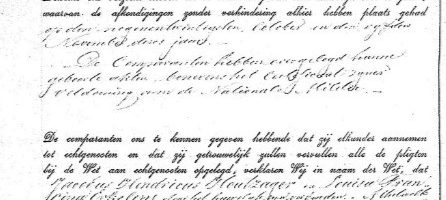 waarvan de afkondigingen zonder verhindering alhier hebben plaats gehad
op den negenentwintigsten October en den vijfden
November dezes jaars
De Comparanten hebben overgelegd hunne
geboorte akten, benevens het
voldoening aan de Nationale Militie
De comparanten ons te kennen gegeven hebbende dat zij elkander aannemen
tot echtgenooten en dat zij getrouwelijk zullen vervullen alle de pligten
bij de Wet aan echtgenooten opgelegd, verklaren Wij in naam der Wet, dat
Hendricus Houtzager en Louisa Fran
door het huwelijk zijn verbonden